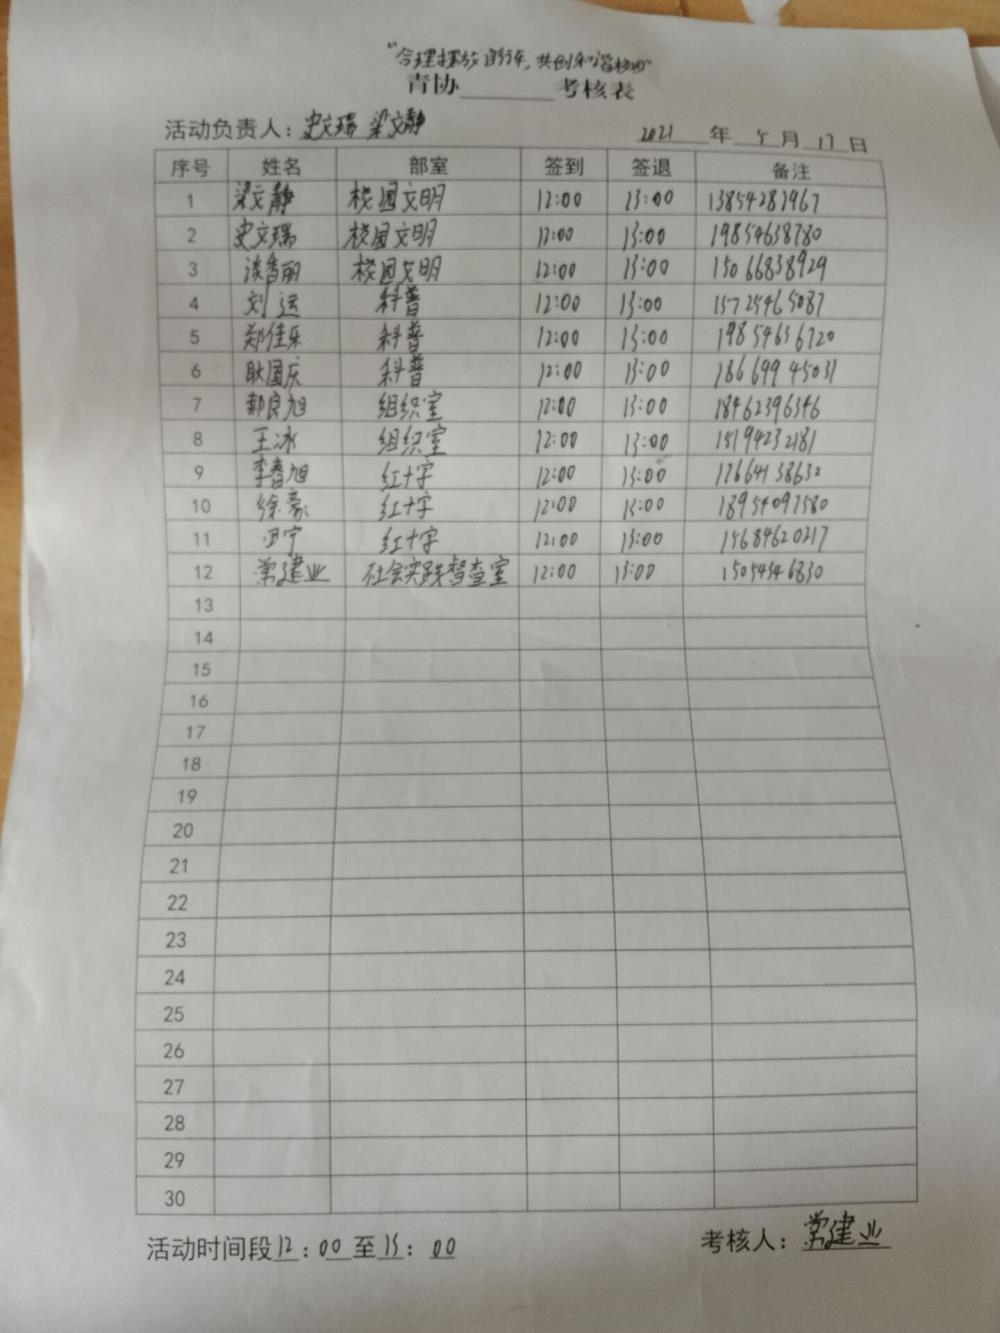 "合理摆放自行车,共创和谐校园"
青协______考核表
活动负责人:史文瑞 梁文静 2021年5月17日
序号 姓名 部室 签到 签退 备注
1 梁文静 校园文明 12:00 13:00 13854287967
2 史文瑞 校园文明 12:00 13:00 19854638780
3 谈香丽 校园文明 12:00 13:00 15066838929
4 刘运 科普 12:00 13:00 15725465087
5 郑佳乐 科普 12:00 13:00 19854656720
6 耿国庆 科普 12:00 13:00 18669945031
7 郝良旭 组织室 12:00 13:00 18462396346
8 王冰 组织室 12:00 13:00 15194232181
9 李春旭 红十字 12:00 13:00 17664138632
10 徐豪 红十字 12:00 13:00 18954097580
11 田宁 红十字 12:00 13:00 15684620217
12 常建业 社会实践督查室 12:00 13:00 15054546830
13
14
15
16
17
18
19
20
21
22
23
24
25
26
27
28
29
30
活动时间段12:00至13:00 考核人:常建业